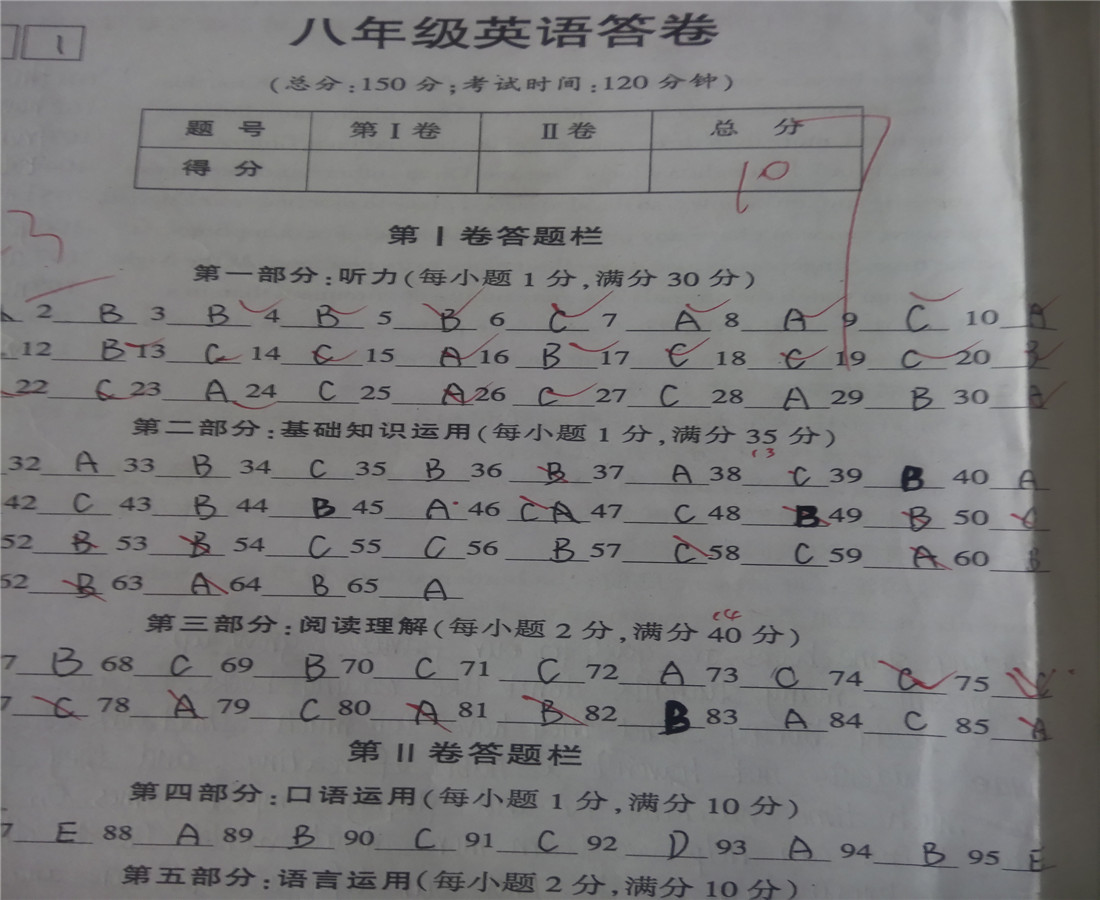 1
八年级英语答卷
(总分:150分;考试时间:120分钟)
题 号 第Ⅰ卷 Ⅱ卷 总 分
得 分 10
3
第Ⅰ卷答题栏
第一部分:听力(每小题1分,满分30分)
2 B 3 B 4 B 5 B 6 C 7 A 8 A 9 C 10 A
12 B 13 C 14 C 15 A 16 B 17 C 18 C 19 C 20 B
22 C 23 A 24 C 25 A 26 C 27 C 28 A 29 B 30 A
第二部分:基础知识运用(每小题1分,满分35分)
13
32 A 33 B 34 C 35 B 36 B 37 A 38 C 39 B 40 A
42 C 43 B 44 B 45 A 46 C A 47 C 48 B 49 B 50 C
52 B 53 B 54 C 55 C 56 B 57 C 58 C 59 A 60 B
52 B 63 A 64 B 65 A
14
第三部分:阅读理解(每小题2分,满分40分)
7 B 68 C 69 B 70 C 71 C 72 A 73 C 74 C 75 C
7 C 78 A 79 C 80 A 81 B 82 B 83 A 84 C 85 A
第Ⅱ卷答题栏
第四部分:口语运用(每小题1分,满分10分)
7 E 88 A 89 B 90 C 91 C 92 D 93 A 94 B 95 E
第五部分:语言运用(每小题2分,满分10分)